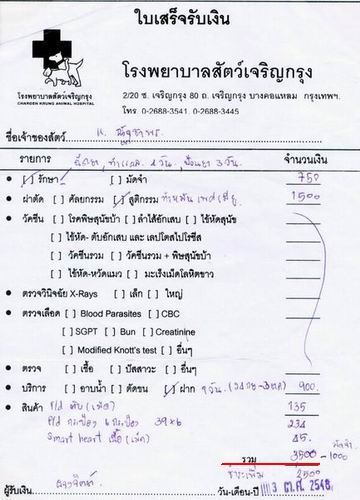 ใบเสร็จรับเงิน
โรงพยาบาลสัตว์เจริญกรุง
CHAROEN KRUNG ANIMAL HOSPITAL
โรงพยาบาลสัตว์เจริญกรุง
2/20 ซ. เจริญกรุง 80 ถ. เจริญกรุง บางคอแหลม กรุงเทพฯ.
โทร. 0-2688-3541, 0-2688-3445
ชื่อเจ้าของสัตว์
รายการ 2 วัน, 3 วัน. จำนวนเงิน
• [/] รักษา [ ] มัดจำ 750
• ผ่าตัด [ ] ศัลยกรรม [/] สูติกรรม ทำหมัน เพศเมีย 1500
• วัคซีน [ ] โรคพิษสุนัขบ้า [ ] ลำไส้อักเสบ [ ] ไข้หัดสุนัข
[ ] ไข้หัด-ตับอักเสบ และ เลปโตสไปโรซีส
[ ] วัคซีนรวม [ ] วัคซีนรวม + พิษสุนัขบ้า
[ ] ไข้หัด-หวัดแมว [ ] มะเร็งเม็ดโลหิตขาว
• ตรวจวินิจฉัย X-Rays [ ] เล็ก [ ] ใหญ่
• ตรวจเลือด [ ] Blood Parasites [ ] CBC
[ ] SGPT [ ] Bun [ ] Creatinine
[ ] Modified Knott's test [ ] อื่นๆ
• ตรวจ [ ] เชื้อ [ ] ปัสสาวะ [ ] อื่นๆ
• บริการ [ ] อาบน้ำ [ ] ตัดขน [/] ฝาก 9 วัน 900.
• สินค้า P/d 135
P/d กระป๋อง 6 กระป๋อง 39x6 234
Smart heart 45.
รวม 3500 -1000
2500
ผู้รับเงิน วัน-เดือน-ปี 3 ต.ค. 2548